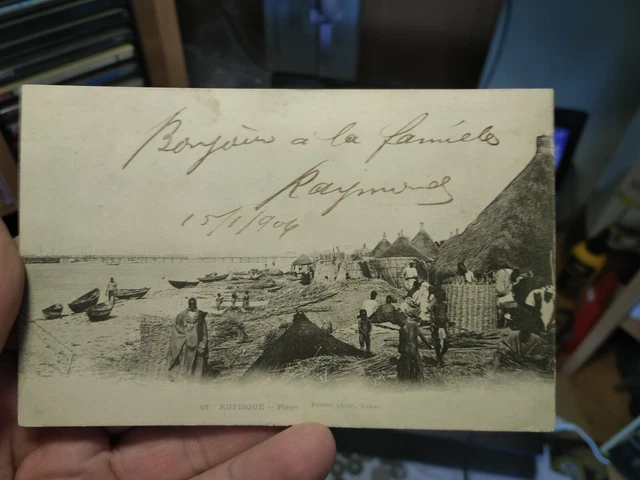 Bonjour a la famille
Raymond
15/1/904
67 RUFISQUE - Plage Fortier photo, Dakar